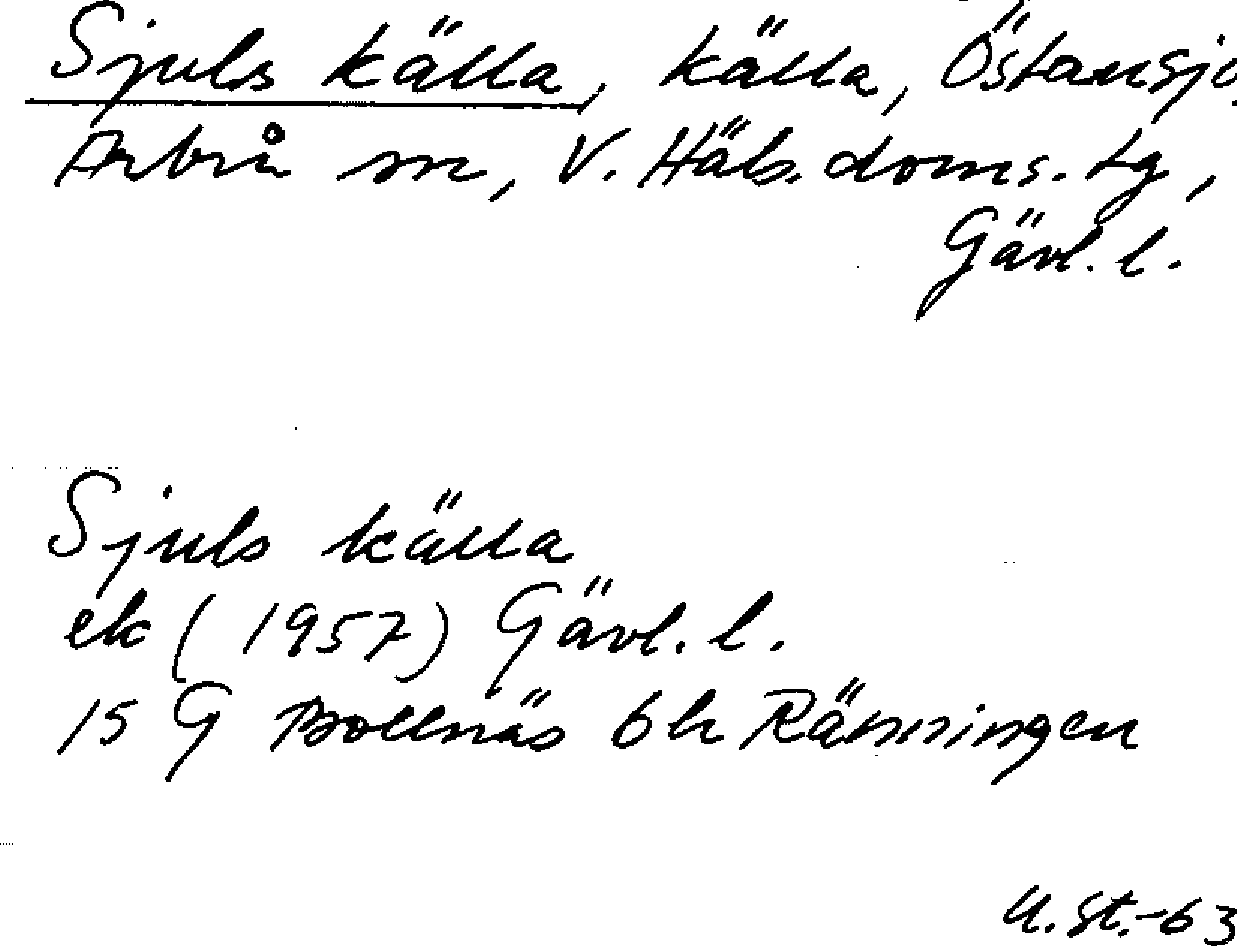 Sjuls källa, källa, Östansjö,
Arbrå sn, V. Häls. doms. tg,
Gävl. l.
Sjuls källa
ek (1957) Gävl. l.
15 G Bollnäs 6h Ränningen
U. St.-63